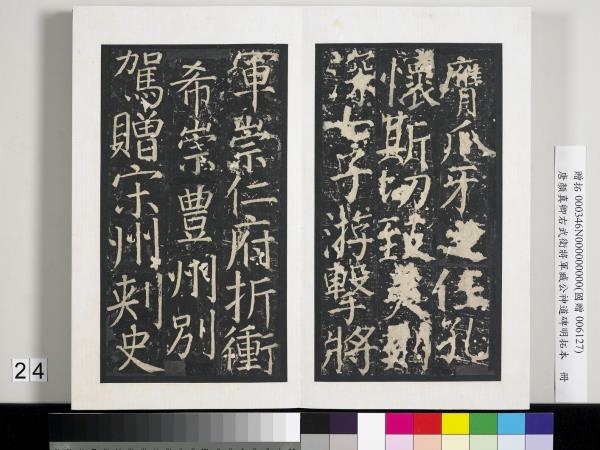 膺爪牙之任孔
懷斯切致美則
深七子游擊將
軍崇仁府折衝
希崇豊州別
駕贈宋州刺史
贈拓 000346N000000000(國贈 006127)
唐顏真卿右武衛將軍臧公神道碑明拓本 冊
24